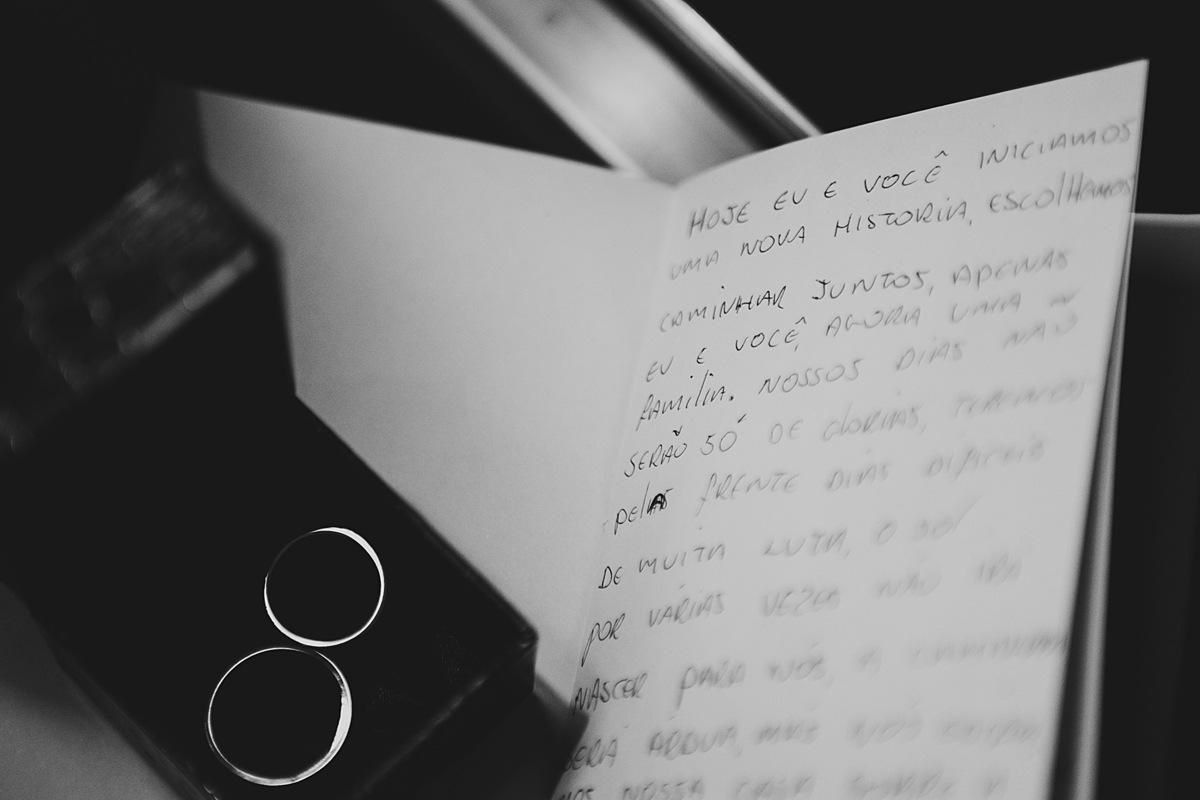 HOJE EU E VOCÊ INICIAMOS
UMA NOVA HISTORIA, ESCOLHEMOS
CAMINHAR JUNTOS, APENAS
EU E VOCÊ, AGORA UMA
FAMILIA. NOSSOS DIAS NÃO
SERÃO SÓ DE GLORIAS, TEREMOS
PELAS FRENTE DIAS DIFICEIS
DE MUITA LUTA, O SOL
POR VÁRIAS VEZES NÃO IRÁ
NASCER PARA NÓS, A CAMINHADA
SERÁ ÁRDUA, MAS NÓS
NOSSA